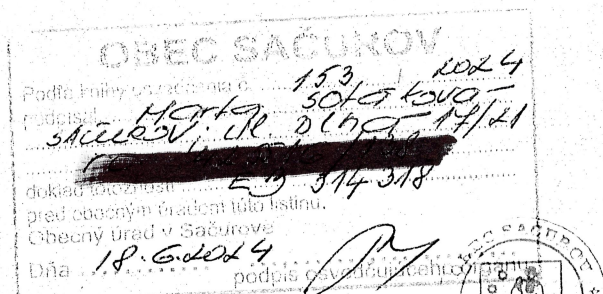 OBEC SAČUROV
Podľa knihy osvedčenia č. 153 / 2024
podpísal Marta Sotáková
SAČUROV, ul. Dlhá 17/21
doklad totožnosti 314 318
pred obecným úradom túto listinu.
Obecný úrad v Sačurove
Dňa 18.6.2024
podpis osvedčujúceho orgánu